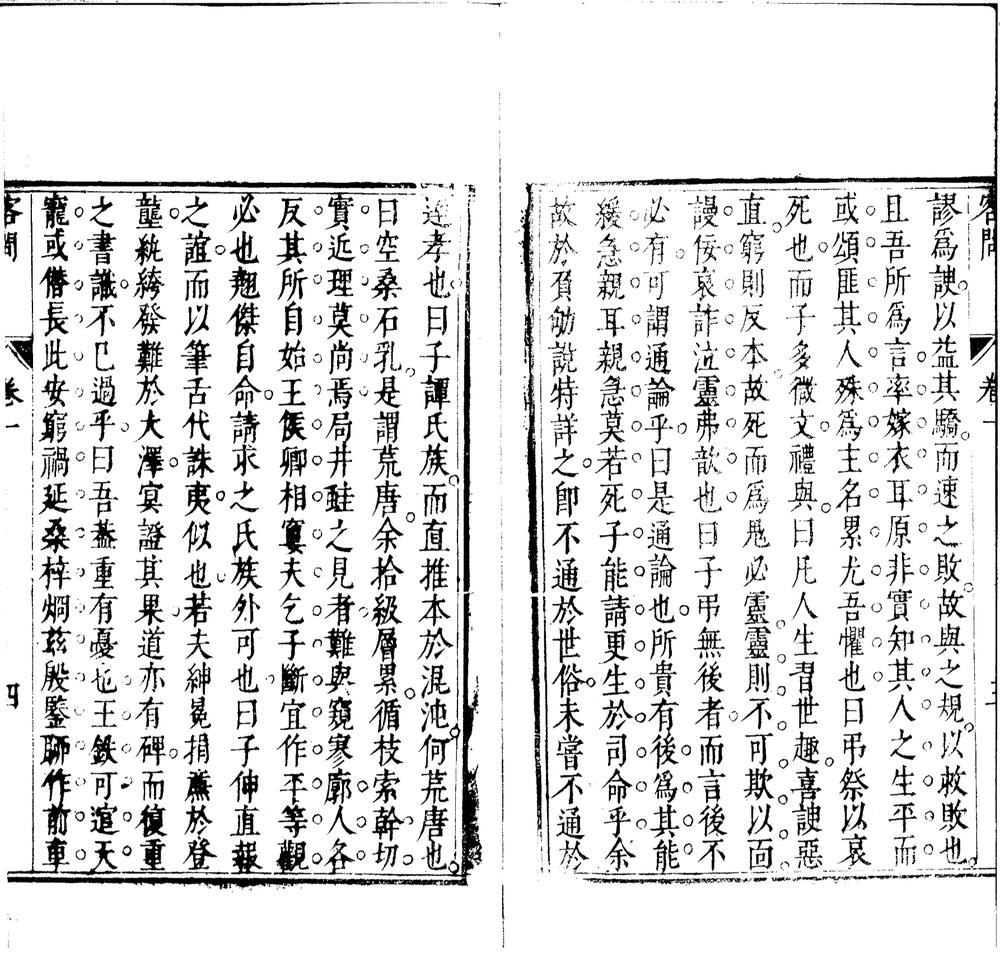 客問 卷一
謬為諛以益其驕而速之敗故與之規以救敗也
且吾所為言率嫁衣耳原非實知其人之生平而
或頌匪其人殊為主名累尤吾懼也曰弔祭以哀
死也而子多微文禮與曰凡人生習世趣喜諛惡
直窮則反本故死而為鬼必靈靈則不可欺以面
謾佞哀詐泣靈弗歆也曰子弔無後者而言後不
必有可謂通論乎曰是通論也所貴有後為其能
緩急親耳親急莫若死子能請更生於司命乎余
故於負劬說特詳之即不通於世俗未嘗不通於
達孝也曰子譚氏族而直推本於混沌何荒唐也
曰空桑石乳是謂荒唐余拾級層累循枝索幹切
實近理莫尚焉局井鼃之見者難與窺寥廓人各
反其所自始王侯卿相窶夫乞子斷宜作平等觀
必也翹傑自命請求之氏族外可也曰子伸直報
之誼而以筆舌代誅夷似也若夫紳冕捐廉於登
壟紈綺發難於大澤冥證其果道亦有碑而復重
之書讖不已過乎曰吾蓋重有憂也王鈇可逭天
寵或僭長此安窮禍延桑梓炯茲殷鑒聊作前車
客問 卷一 四